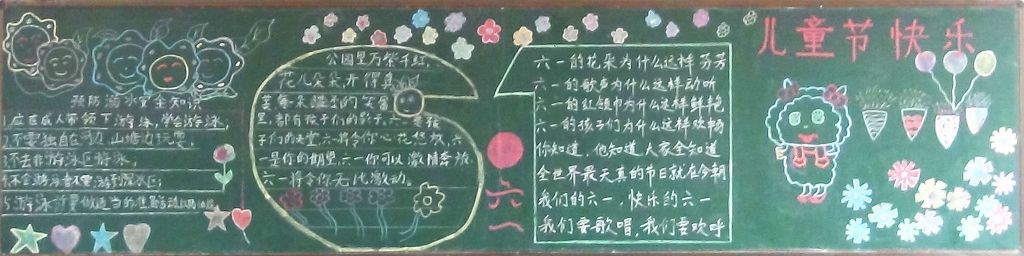 预防溺水安全知识
1.应在成人带领下游泳,学会游泳,
不要独自在河边、山塘边玩耍,
不去非游泳区游泳,
不会游泳者不要游到深水区;
5.游泳前要做适当的准备活动
公园里万紫千红,
花儿朵朵,开得真
里,都有孩子们的影子。六一是孩
子们的天堂,六一将令你心花怒放,六
一是你的期望,六一你可以激情奔放
六一将令你无比激动。
六一的花朵为什么这样芬芳
六一的歌声为什么这样动听
六一的红领巾为什么这样鲜艳
六一的孩子们为什么这样欢畅
你知道,他知道,大家全知道
全世界最天真的节日就在今朝
我们的六一,快乐的六一
我们要歌唱,我们要欢呼
六一
儿童节快乐